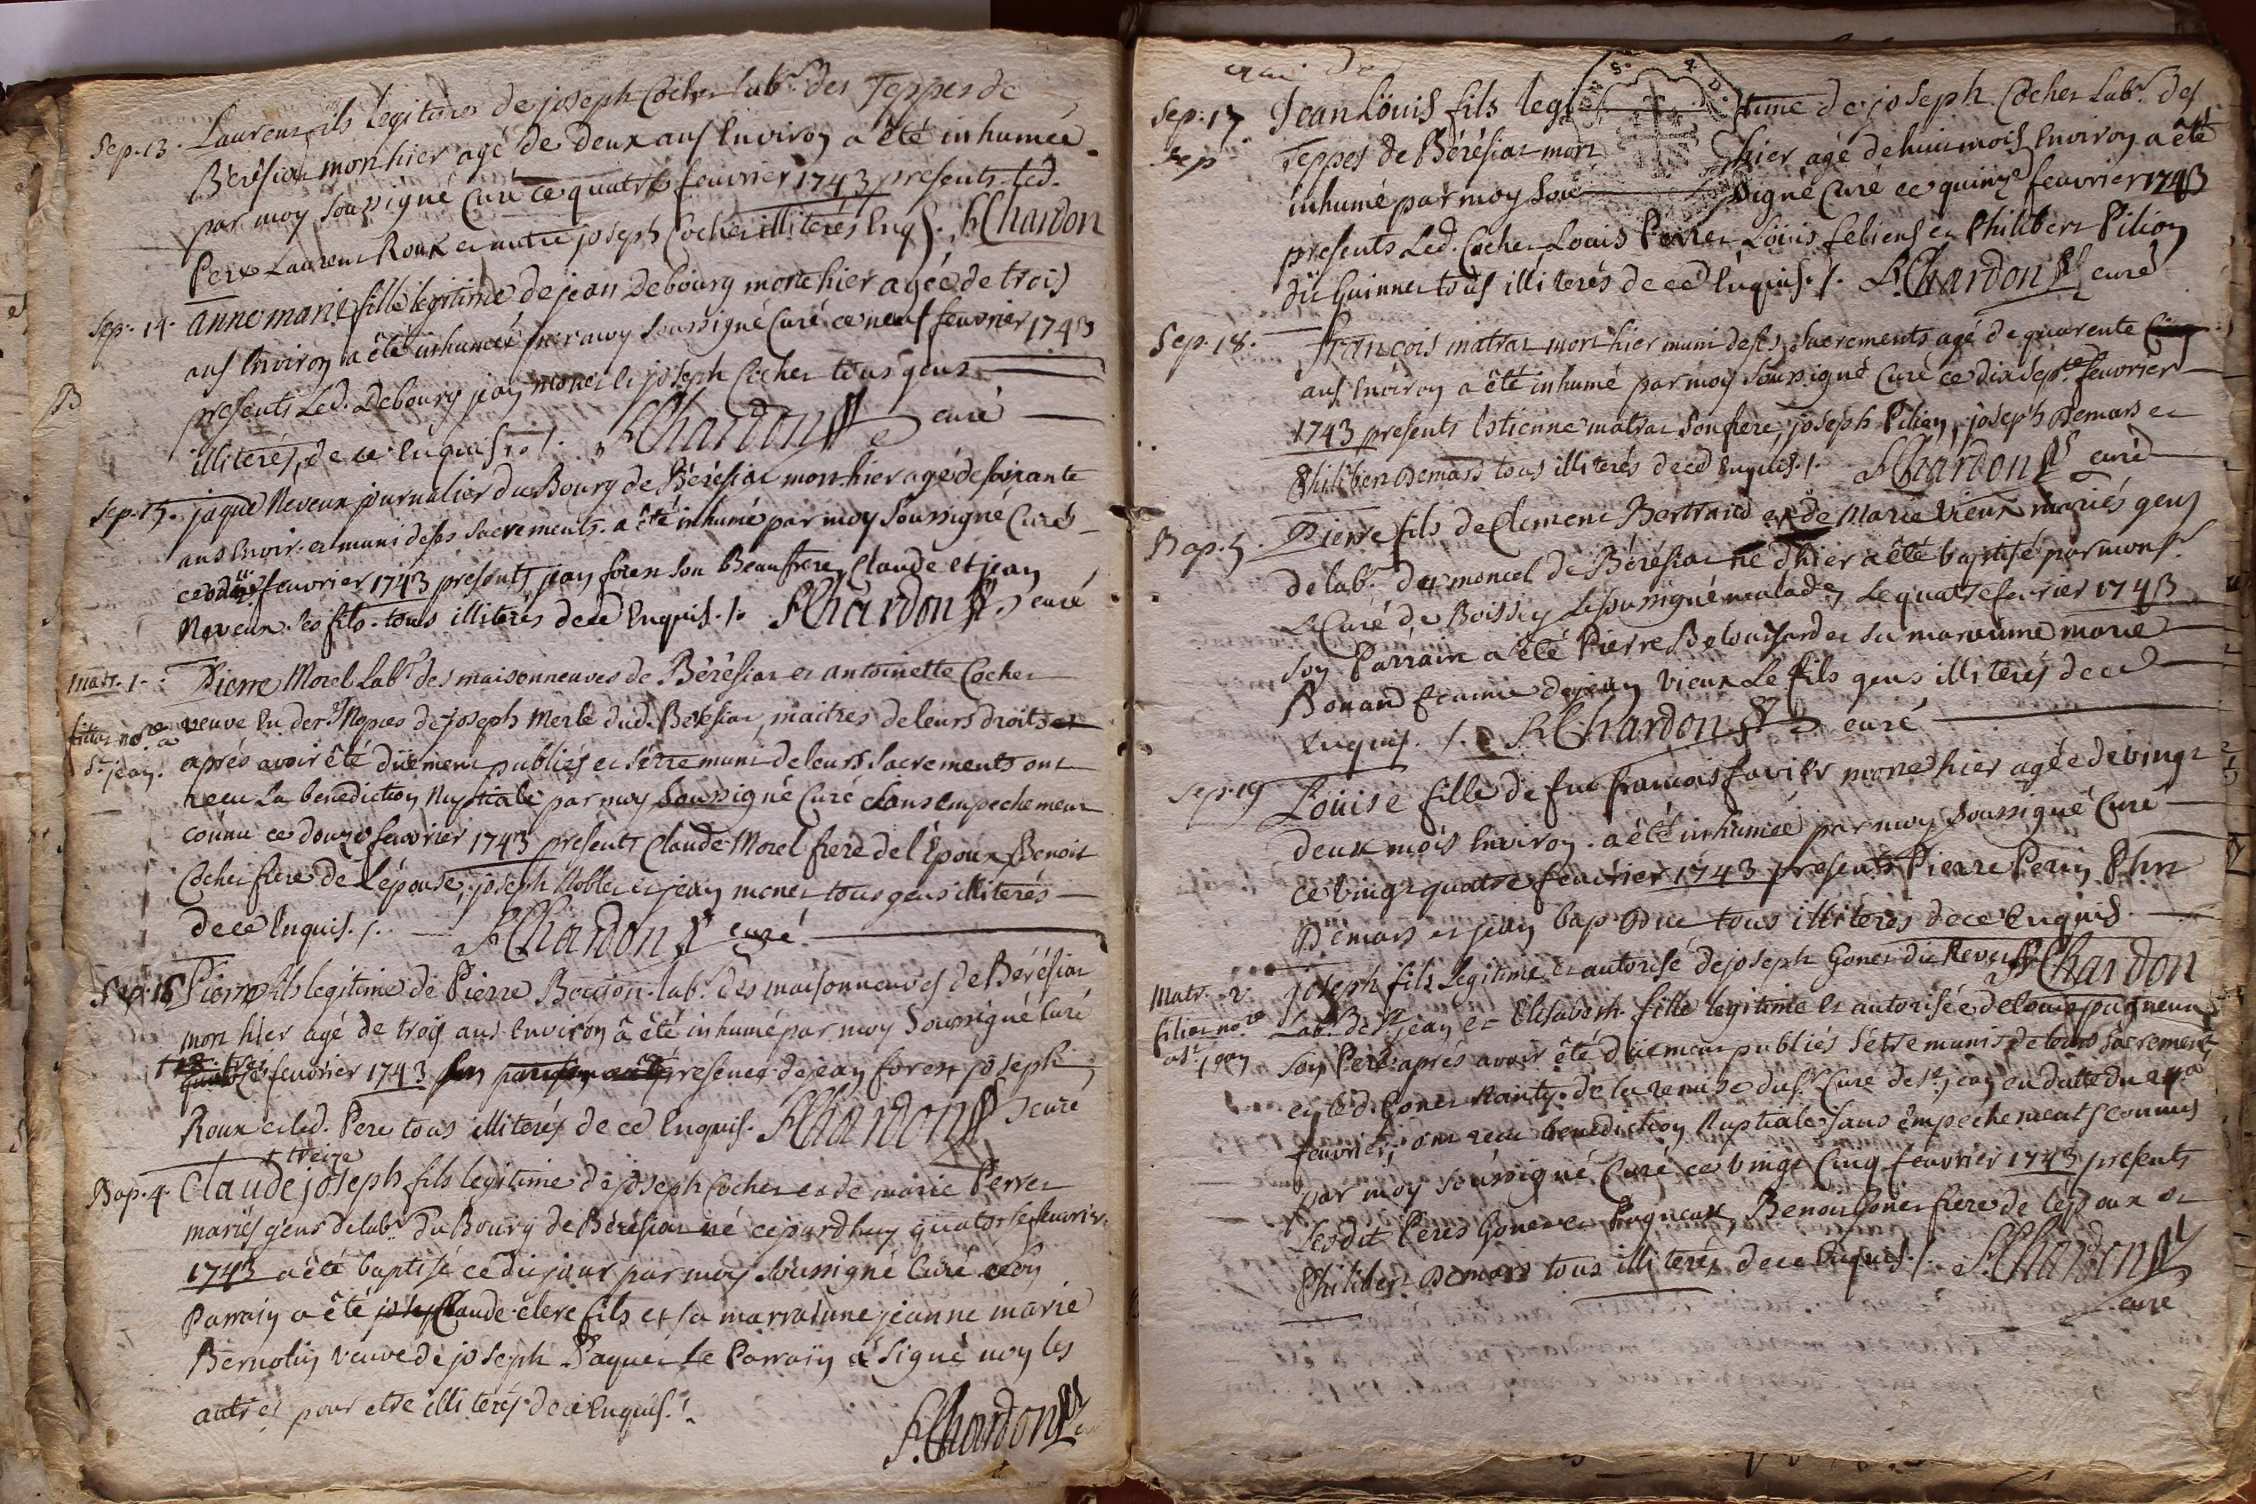 Sep. 13. Laurent fils legitime de joseph Cocher lab.r des Teppes de
Bérésiat mort hier agé de deux ans Environ a êté inhumée
par moy soussigné Curé ce quatre feuvrier 1743 presents led.
Pere Laurent Roux et autre joseph Cocher illiterés Enq. F. Chardon
Sep. 14. anne marie fille legitime de jean Debourg morte hier agée de trois
ans Environ a êté inhumée par moy soussigné Curé ce neuf feuvrier 1743
presents Led. Debourg jean monet et joseph Cocher tous gens
illiterés de ce Enquis. /. F. Chardon curé
Sep. 15. jaque Neveux journalier du Bourg de Bérésiat mort hier agé de soixante
ans Envir. et muni de ses sacrements. a êté inhumé par moy soussigné Curé
ce feuvrier 1743 presents jean foret son Beaufrere, Claude et jean
Neveux ses fils. tous illiterés de ce Enquis. /. F. Chardon curé
matr. 1. Pierre Morel Lab.r des maisonneuves de Bérésiat et antoinette Cocher
veuve En der.s Nopces de joseph Merle dud. Bérésiat, maitres de leurs droits et
st. jean. aprés avoir êté düement publiés et s'étre muni de leurs sacrements ont
recu La benediction Nuptiale par moy soussigné Curé sans empechement
connu ce douze feuvrier 1743 presents Claude Morel frere de l'Epoux Benoit
Cocher frere de L'épouse, joseph Noblet et jean monet tous gens illiterés
de ce Enquis. /. F. Chardon curé.
Sep. 16 Pierre fils legitime de Pierre Boujon lab.r des maisonneuves de Bérésiat
mort hier agé de trois ans Environ a êté inhumé par moy soussigné Curé
feuvrier 1743 presence de jean foret joseph
Roux et led. Pere tous illiterés de ce Enquis. F. Chardon curé
+ treize
Bap. 4. Claude joseph fils legitime de joseph Cocher et de marie Perret
mariés gens de lab.r du Bourg de Bérésiat né cejourdhuy quatorse feuvrier
1743 a êté baptisé ce dit jour par moy soussigné Curé son
Parrain a êté Claude clerc fils et sa marraine jeanne marie
Bernolin veuve de joseph Paquet Le Parrain a signé noy les
autres pour etre illiterés de ce Enquis. /.
F. Chardon
Sep. 17 Jean Loüis fils legitime de joseph Cocher Lab.r des
Sep Teppes de Bérésiat mort hier agé de huit mois Environ a êté
inhumé par moy Soussigné Curé ce quinze feuvrier 1743
presents Led. Cocher Louis Perret Loüis feliens et Philibert Pilion
dit Guinnet tous illiterés de ce Enquis. /. F. Chardon curé
Sep. 18. François matrat mort hier muni de ses sacrements agé de quarente
ans Environ a êté inhumé par moy soussigné Curé ce dix sept.e feuvrier
1743 presents Estienne matrat son frere, joseph Pilion, joseph Demars et
Philibert Demars tous illiterés de ce Enquis. /. F. Chardon curé
Bap. 5. Pierre fils de Clement Bertrand et de Marie Vieux mariés gens
de lab.r du moncel de Bérésiat né d'hier a êté baptisé par mons.r
Le Curé de Boissey Le soussigné malade, Le quatre feuvrier 1743
son Parrain a êté Pierre Belouisard et sa marainne marie
Bonand femme de jean Vieux Le fils gens illiterés de ce
Enquis. /. F. Chardon curé
Sep. 19 Loüise fille de feu francois favier morte hier agée de vingt
deux mois Environ. a êté inhumée par moy soussigné Curé
ce vingt quatre feuvrier 1743 presents Pierre Perin Ph.rt
Demars et jean bap. Duc tous illiterés de ce Enquis
F. Chardon
Matr. 2. joseph fils Legitime et autorisé de joseph Gonet dit
Lab.r de st. jean et Elisabeth fille legitime et autorisée de Louis pugneux
son Pere aprés avoir êté düement publiés s'étre munis de leurs sacrements
et led. Gonet Nanty de la remise du s.r Curé de s.t jean en datte du 24.e
feuvrier; ont recu benediction Nuptiale sans empechements connus
par moy soussigné Curé ce vingt Cinq feuvrier 1743 presents
Lesdit Peres Gonet et Pugneux, Benoit Gonet frere de l'époux et
Philibert Demars tous illiterés de ce Enquis /. F. Chardon
curé